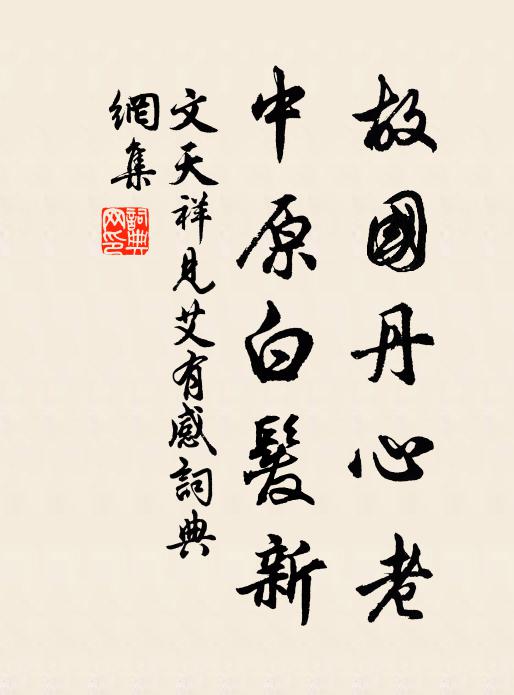 故國丹心老
中原白髮新
文天祥見艾有感詞典
網集
詞典
网印